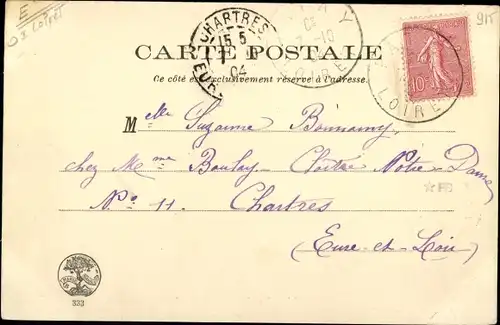 E
O3. Loiret
915
CHARTRES
15 5
04
EURE
10
LOIRE
10c
CARTE POSTALE
Ce côté est exclusivement réservé à l'adresse.
Melle Suzanne Bonnamy
chez Mme Boulay - Cloître Notre-Dame
No 11. Chartres
(Eure-et-Loir)
333